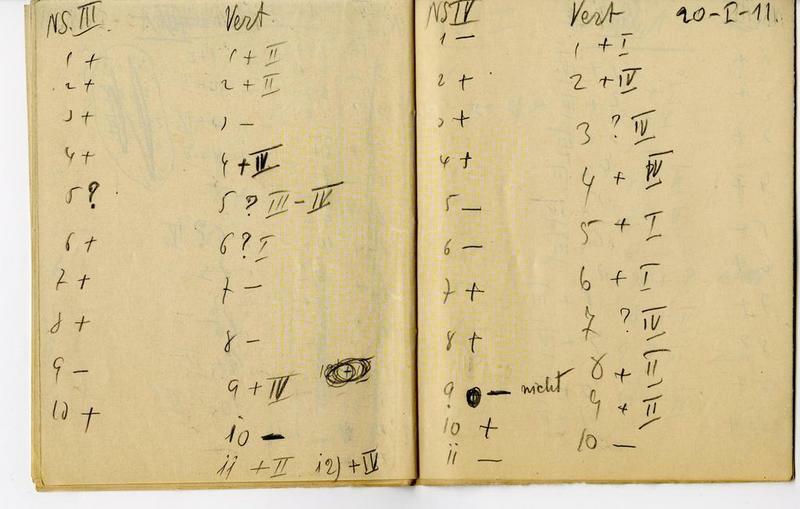 NS. III Vert.
1 + 1 + II
2 + 2 + II
3 + 3 –
4 + 4 + IV
5 ? 5 ? III – IV
6 + 6 ? I
7 + 7 –
8 + 8 –
9 – 9 + IV
10 + 10 –
11 + II 12) + IV
NS IV Vert 20-I-11.
1 – 1 + I
2 + 2 + IV
3 + 3 ? IV
4 + 4 + IV
5 – 5 + I
6 – 6 + I
7 + 7 ? IV
8 + 8 + II
9 – nicht 9 + II
10 + 10 –
11 –